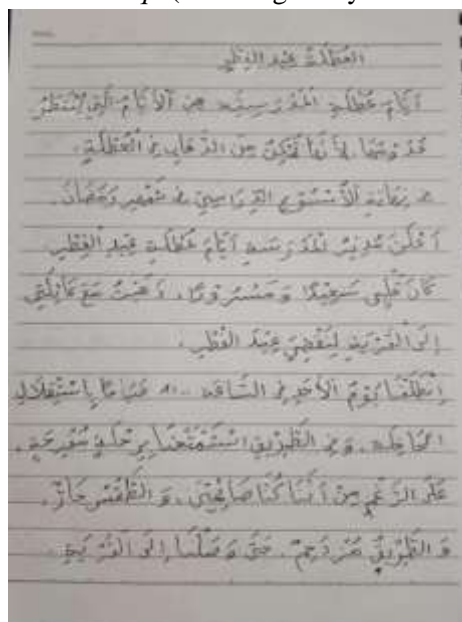 العُطْلَةُ عِيْدِ الفِطْرِ
أَيَّامُ عُطْلَةِ المَدْرَسِيَّةِ مِنَ الْأَيَّامِ الَّتِي يُنْتَظَرُ
قُدُوْمُهَا. لِأَنَّهَا تُمَكِّنُ مِنَ الذَّهَابِ فِي الْعُطْلَةِ.
فِي نِهَايَةِ الْأُسْبُوْعِ الدِّرَاسِيِّ فِي شَهْرِ رَمَضَانَ.
أَعْلَنَ مُدِيْرُ المَدْرَسَةِ أَيَّامَ عُطْلَةِ عِيْدِ الْفِطْرِ.
كَانَ قَلْبِي سَعِيْدًا وَ مَسْرُوْرًا. ذَهَبْتُ مَعَ عَائِلَتِي
إِلَى الْقَرْيَةِ لِنَقْضِيَ عِيْدَ الْفِطْرِ.
اِنْطَلَقْنَا يَوْمَ الْأَحَدِ فِي السَّاعَةِ ٨،٠٠ صَبَاحًا بِاسْتِقْلَالِ
الحَافِلَةِ. وَ فِي الطَّرِيْقِ اسْتَمْتَعْنَا بِرِحْلَةٍ مُفْرِحَةٍ.
عَلَى الرَّغْمِ مِنْ أَنَّنَا كُنَّا صَائِمِيْنَ. وَ الطَّقْسُ حَارٌّ.
وَ الطَّرِيْقُ مُزْدَحِمٌ. حَتَّى وَصَلْنَا إِلَى الْقَرْيَةِ.